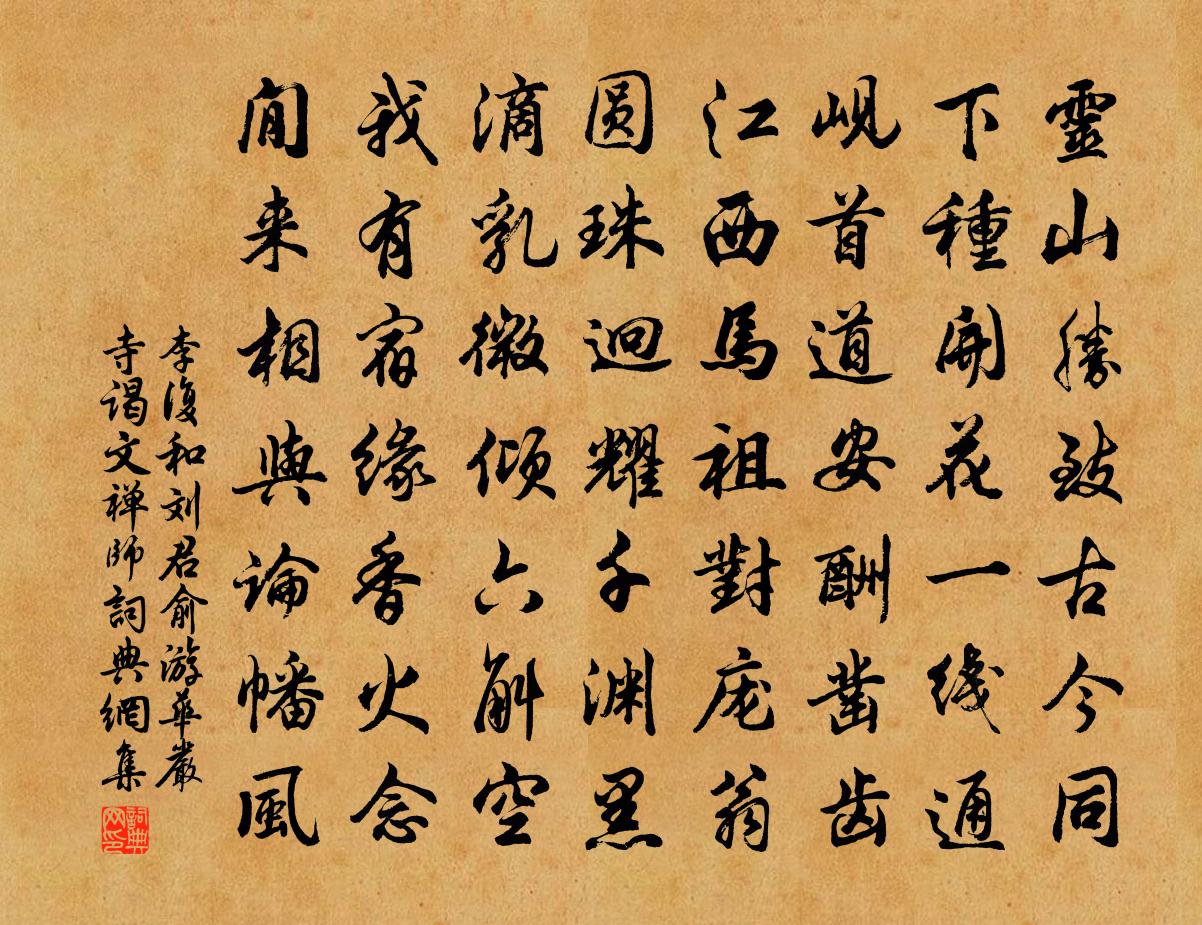 靈山勝致古今同
下種開花一綫通
峴首道安酬凿齿
江西馬祖對庞翁
圆珠迴耀千渊黑
滴乳微倾六斛空
我有宿缘香火念
閒来相與論幡風
李復和刘君俞游华嚴
寺谒文禅師詞典網集
詞典网印